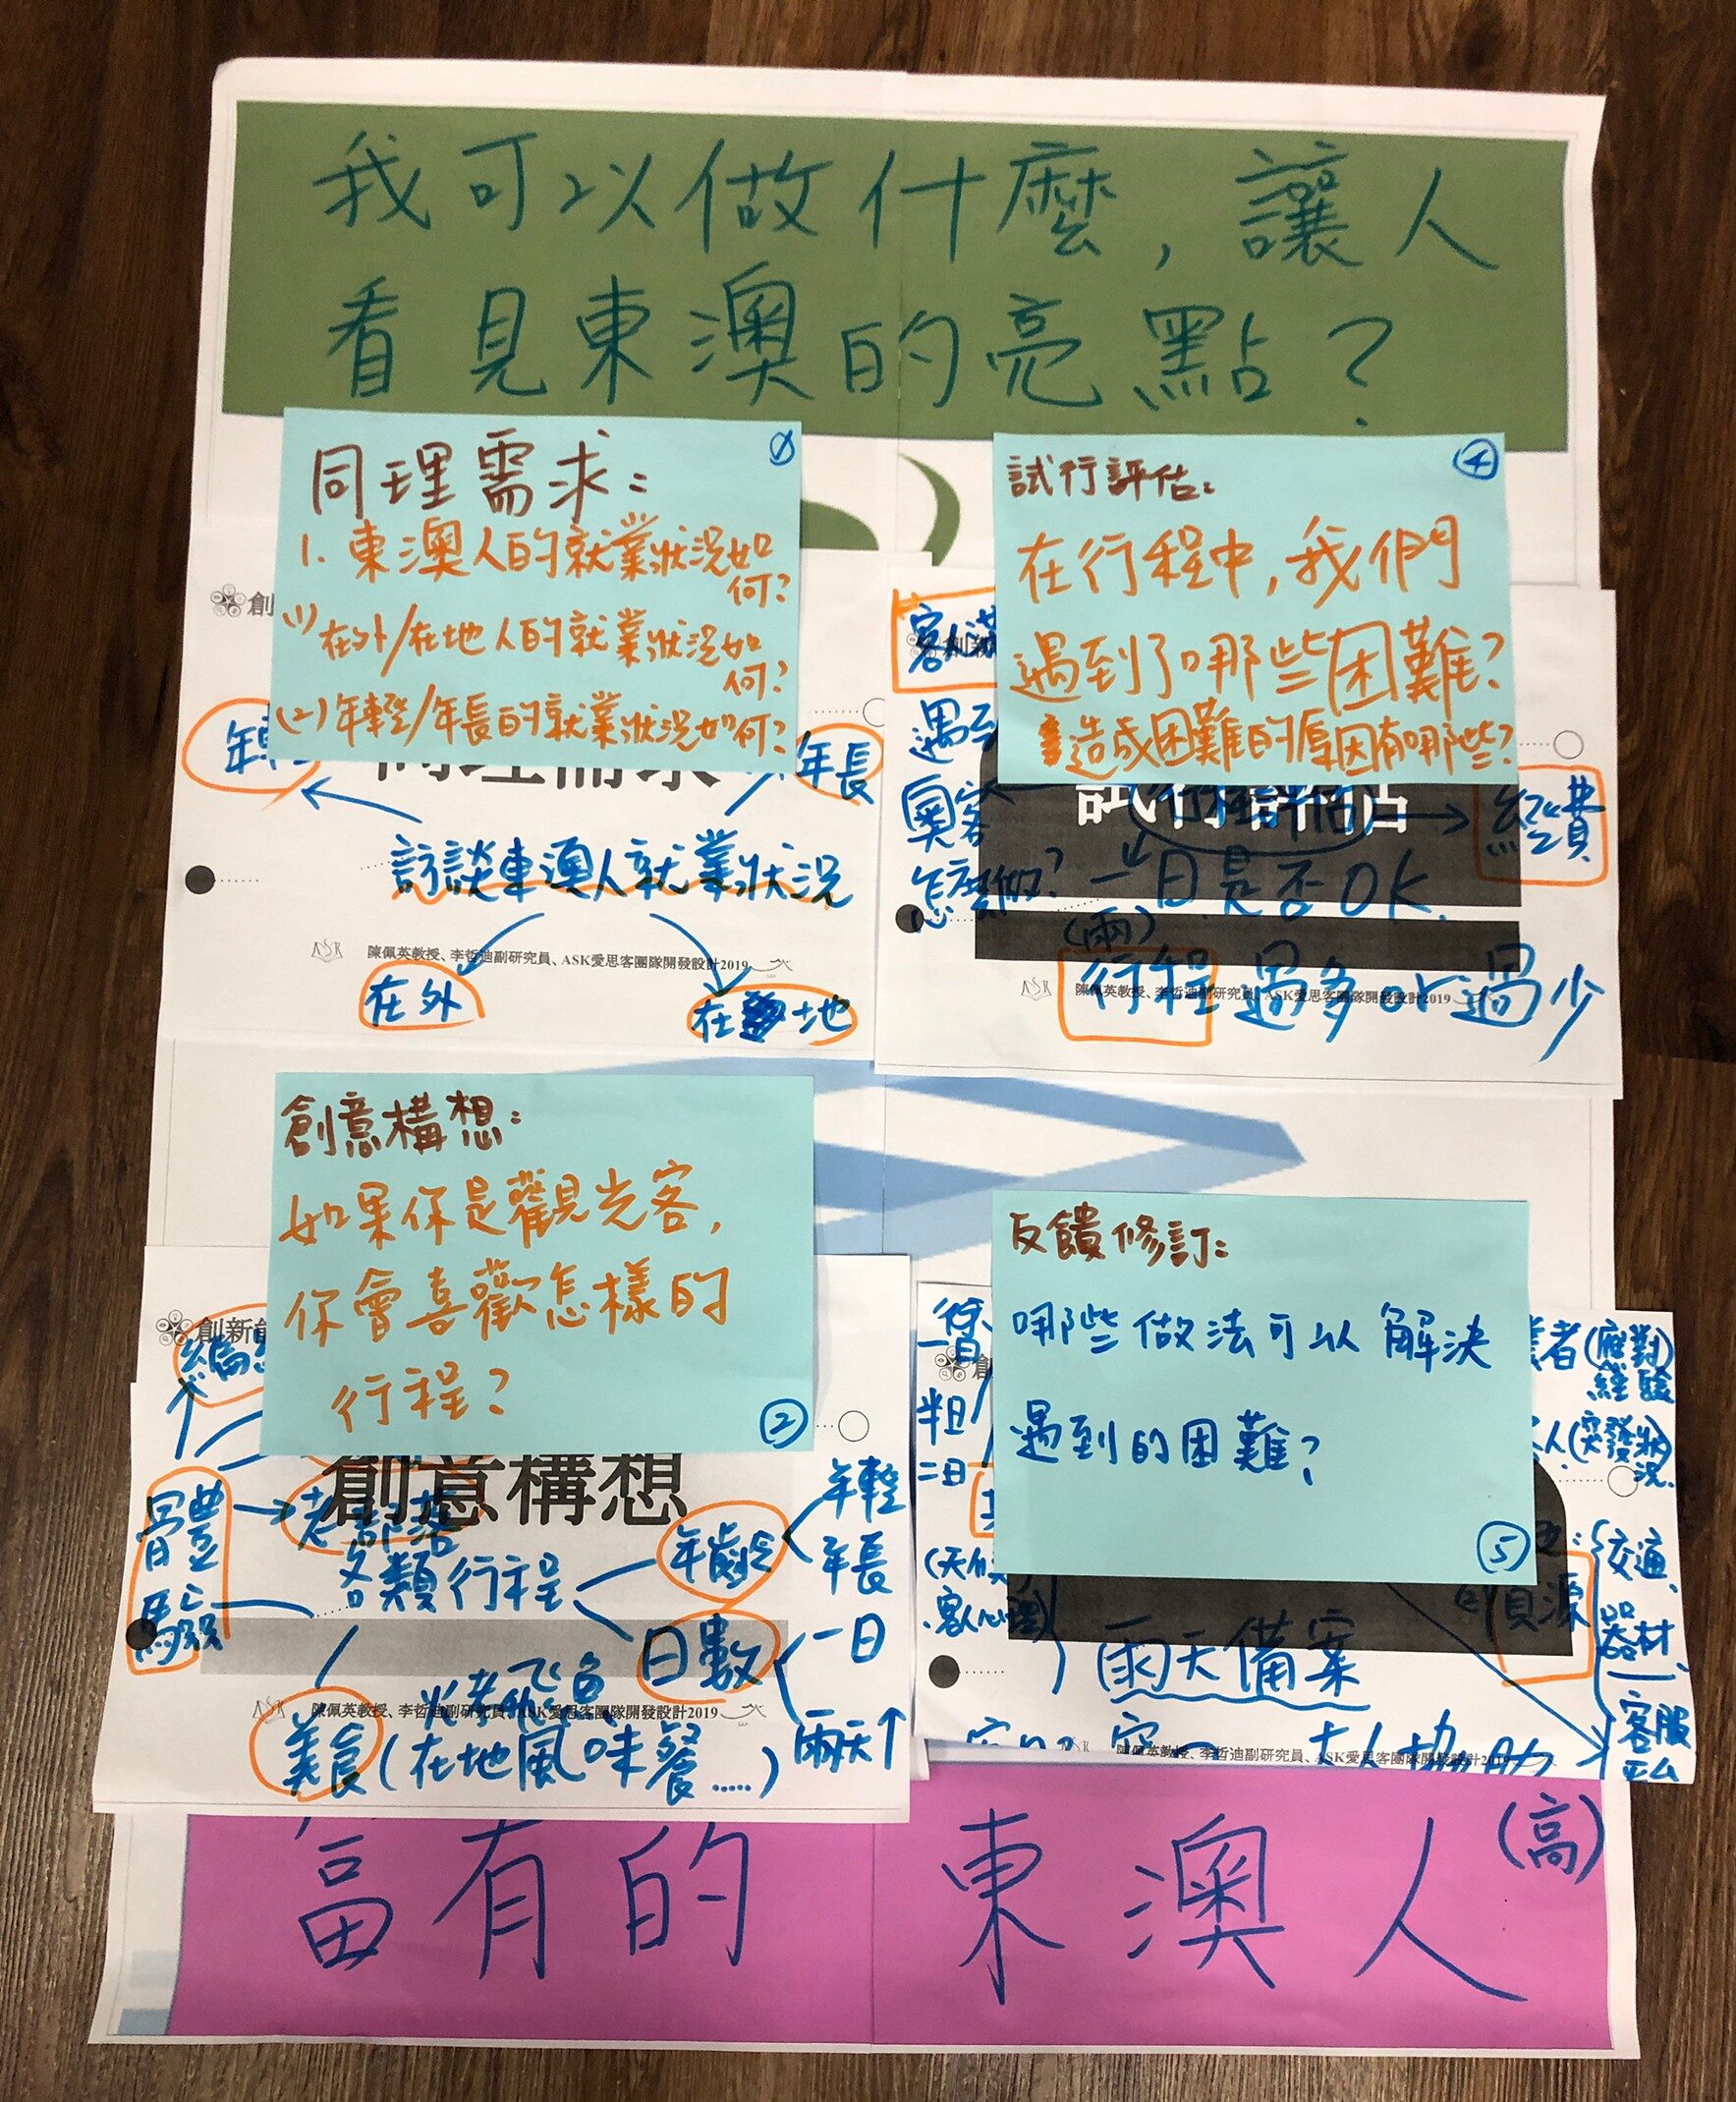 我可以做什麼，讓人
看見東澳的亮點？
同理需求：
1. 東澳人的就業狀況如
何？
(1) 在外/在地人的就業狀況如
何？
(2) 年輕/年長的就業狀況如何？
年長
訪談東澳人就業狀況
陳佩英教授、李哲迪副研究員、ASK愛思客團隊開發設計2019
在外
在地
④
試行評估：
在行程中，我們
遇到了哪些困難？
造成困難的原因有哪些？
客人
遇到
奧客
怎麼辦？
試行評估
行程評估
經費
一日是否OK.
(兩)
行程過多or過少
陳佩英教授、李哲迪副研究員、ASK愛思客團隊開發設計2019
創意構想：
如果你是觀光客，
你會喜歡怎樣的
行程？
②
創新
創意構想
體驗
老部落
各類行程
年齡
年輕
年長
日數
一日
兩天↑
火烤飛魚
陳佩英教授、李哲迪副研究員、ASK愛思客團隊開發設計2019
美食(在地風味餐.....)
反饋修訂：
哪些做法可以解決
遇到的困難？
⑤
半日
二日
者(應對
經驗)
人(突發狀
況)
資源
交通、
器材、
客服
雨天備案
大人協助
陳佩英教授、李哲迪副研究員、ASK愛思客團隊開發設計2019
富有的東澳人
(高)